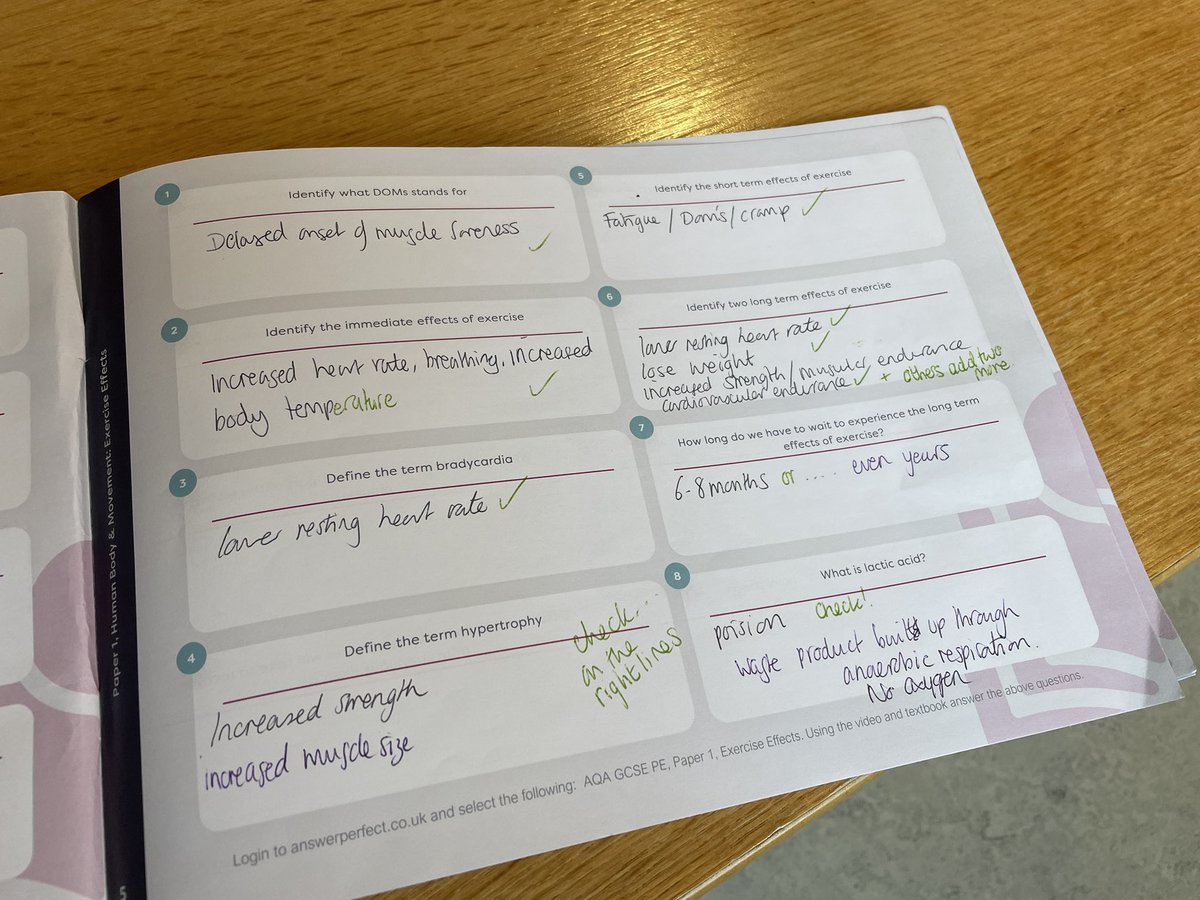 Paper 1, Human Body & Movement: Exercise Effects
5
1
Identify what DOMs stands for
Delayed onset of muscle soreness ✓
2
Identify the immediate effects of exercise
Increased heart rate, breathing, increased
body temperature ✓
3
Define the term bradycardia
lower resting heart rate ✓
4
Define the term hypertrophy
check...
on the
right lines
Increased strength
increased muscle size
5
Identify the short term effects of exercise
Fatigue / Dom's / cramp ✓
6
Identify two long term effects of exercise
lower resting heart rate ✓
lose weight ✓
increased strength / muscular endurance
cardiovascular endurance ✓ + others add two
more
7
How long do we have to wait to experience the long term
effects of exercise?
6-8 months or .... even years
8
What is lactic acid?
poision check!
waste product builds up through
anaerobic respiration.
No oxygen
Login to answerperfect.co.uk and select the following: AQA GCSE PE, Paper 1, Exercise Effects. Using the video and textbook answer the above questions.